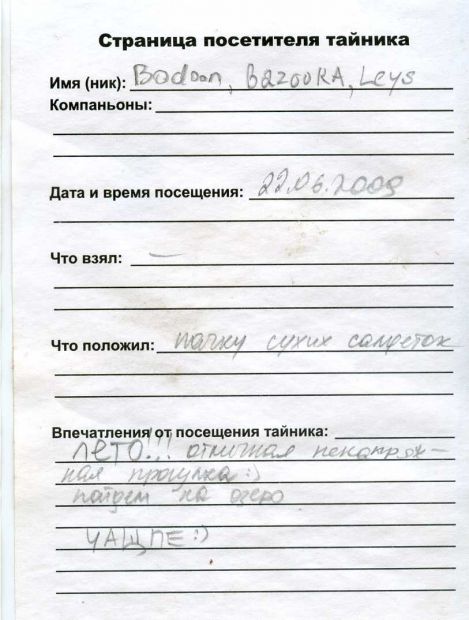 Страница посетителя тайника
Имя (ник): Badoon, bazooKA, Leys
Компаньоны:
Дата и время посещения: 22.06.2009
Что взял: —
Что положил: пачку сухих салфеток
Впечатления от посещения тайника:
ЛЕТО!!! отличная ненапряж-
ная прогулка:)
пойдем на озеро
ЧАЩПЕ:)